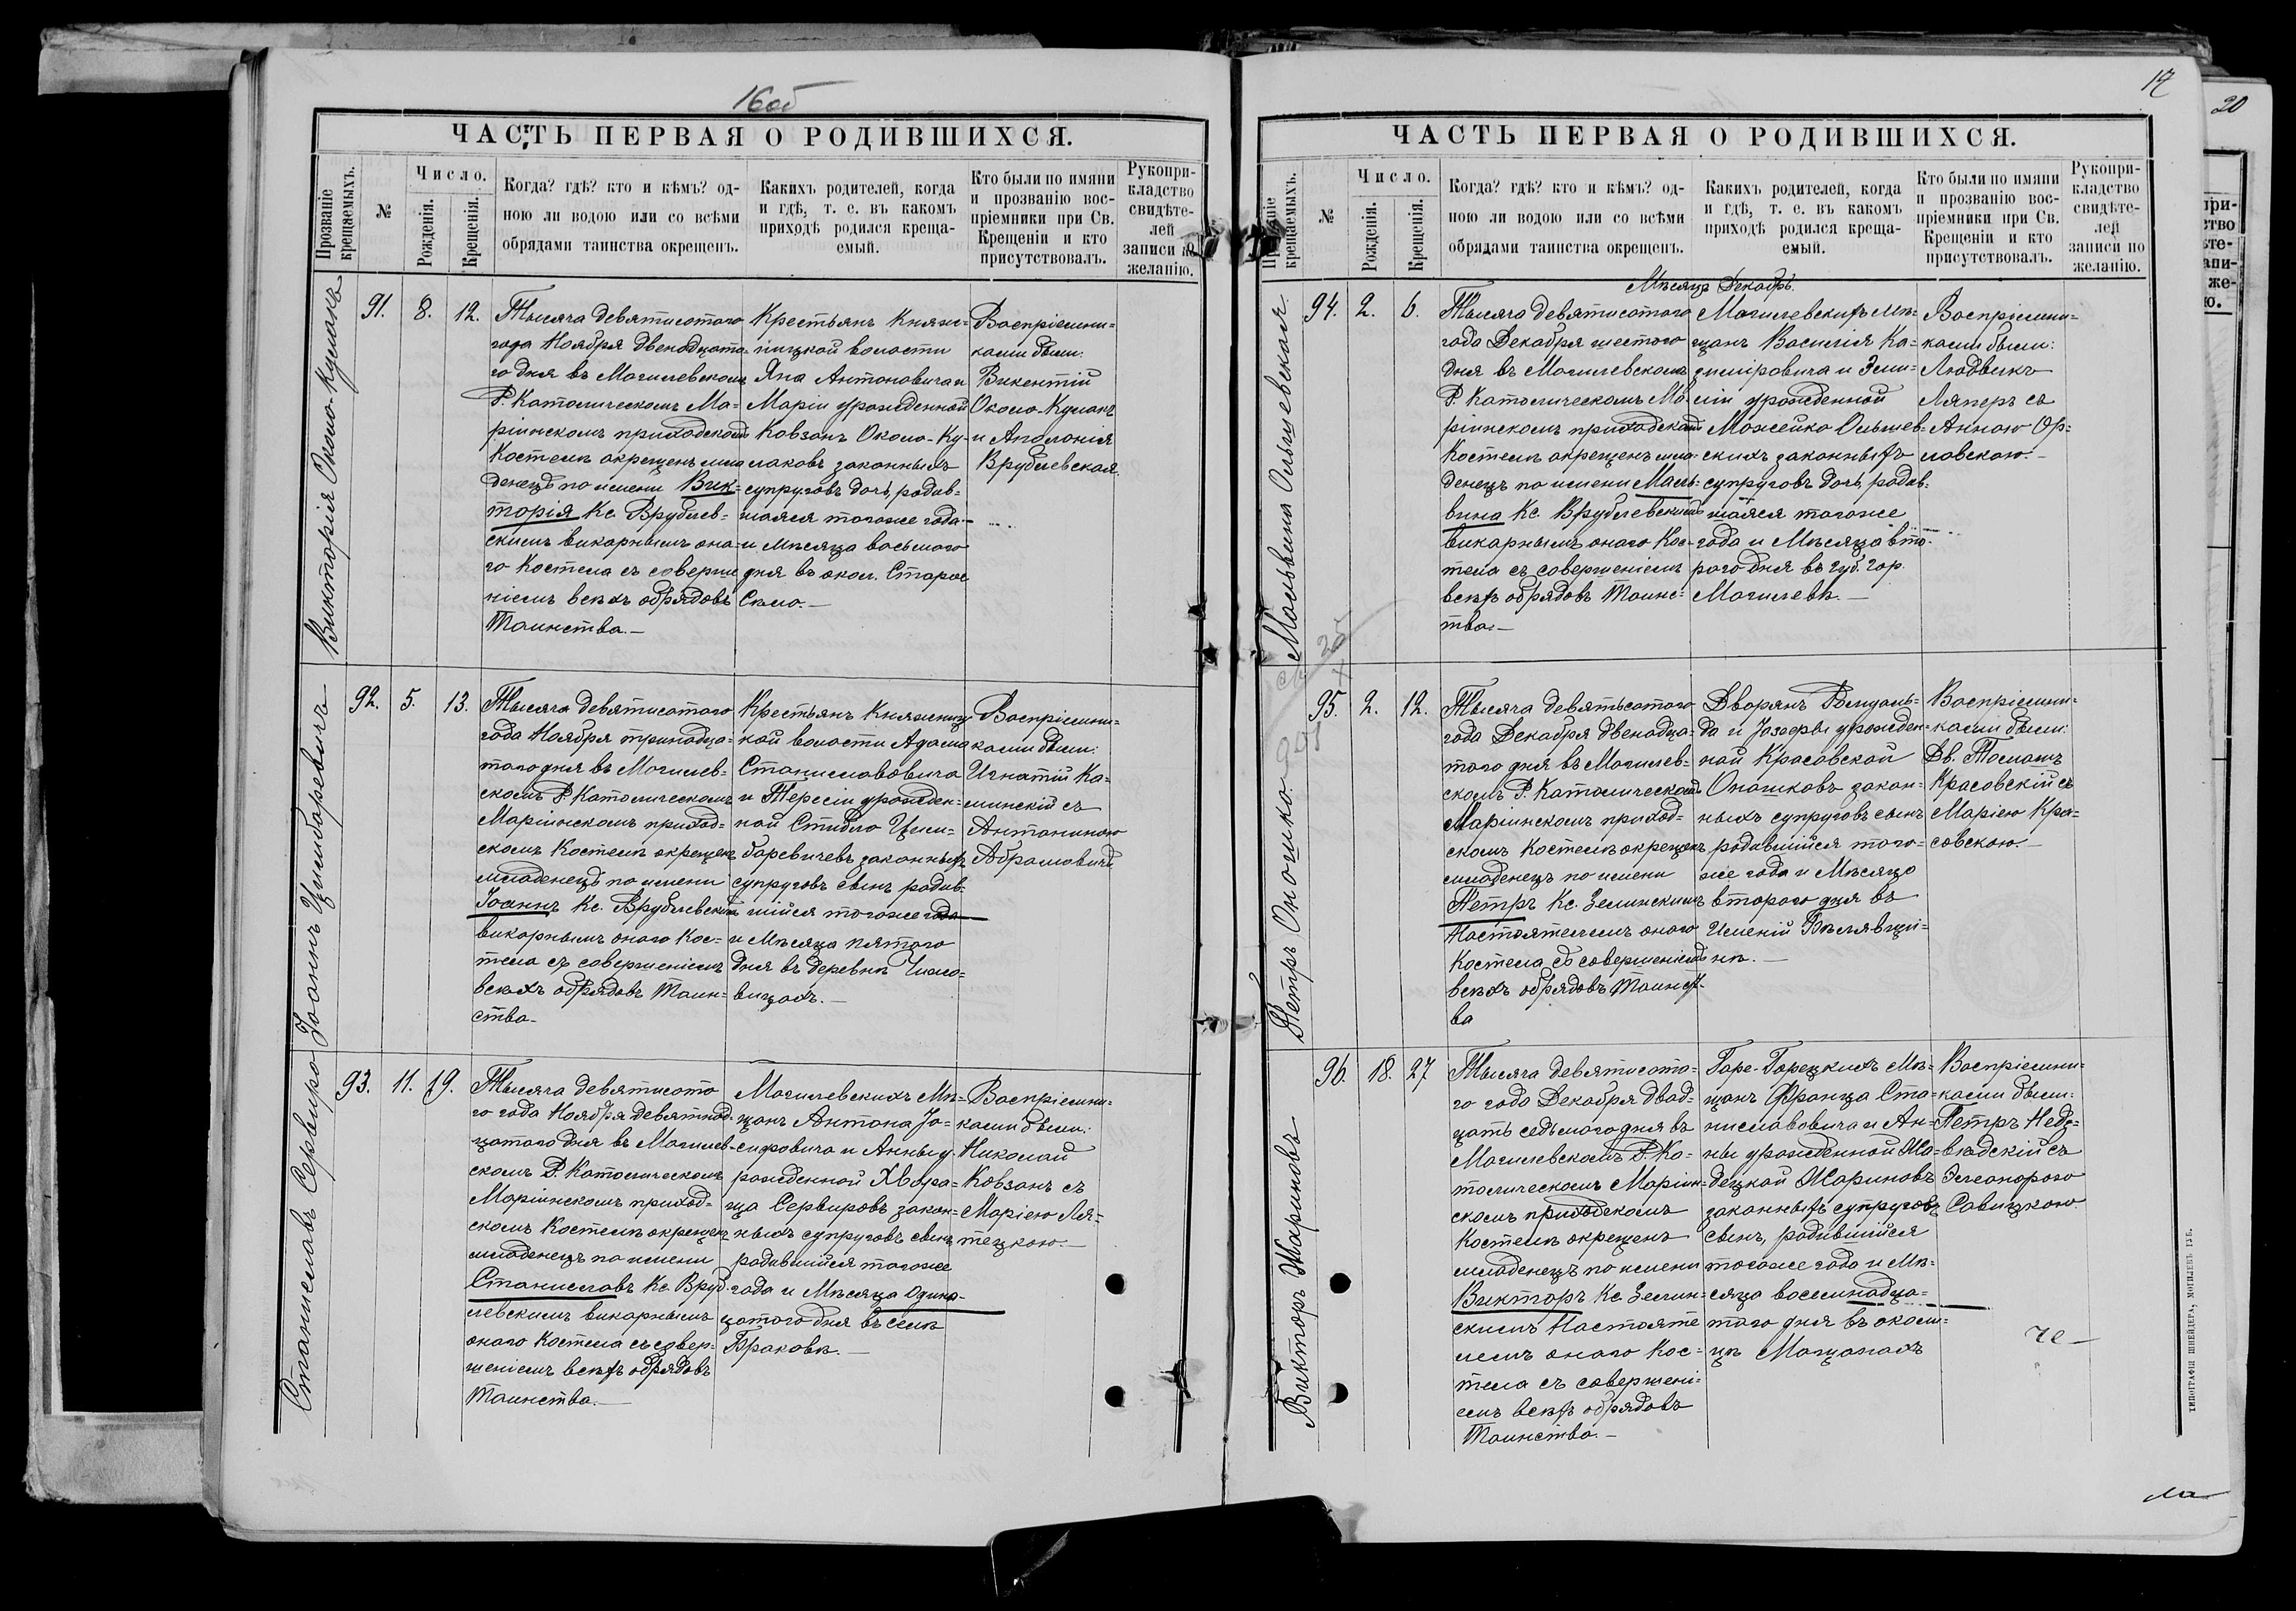 16об
ЧАСТЬ ПЕРВАЯ О РОДИВШИХСЯ.
Прозваніе крещаемыхъ.
№
Число.
Рожденія.
Крещенія.
Когда? гдѣ? кто и кѣмъ? од-
ною ли водою или со всѣми
обрядами таинства окрещенъ.
Какихъ родителей, когда
и гдѣ, т. е. въ какомъ
приходѣ родился креща-
емый.
Кто были по имяни
и прозванію вос-
пріемники при Св.
Крещеніи и кто
присутствовалъ.
Рукопри-
кладство
свидѣте-
лей
записи по
желанію.
Викторія Около-Кулакъ
91.
8.
12.
Тысяча девятисотого
года Ноября двенадцато-
го дня въ Могилевскомъ
Р. Католическомъ Ма-
ріинскомъ приходскомъ
Костелѣ окрещенъ мла
денецъ по имени Вик-
торія Кс. Врублев-
скимъ викарнымъ она-
го Костела съ соверше
ніемъ всѣхъ обрядовъ
Таинства.—
Крестьянъ Княжи-
ницкой волости
Яна Антоновича и
Маріи урожденной
Ковзанъ Около-Ку-
лаковъ законныхъ
супруговъ дочь, родив-
шаяся тогоже года
и мѣсяца восьмого
дня въ окол. Старое
Село.—
Воспріемни-
ками были:
Викентій
Около-Кулакъ
и Аполонія
Врублевская.
Іоаннъ Цимбаревичъ
92.
5.
13.
Тысяча девятисотого
года Ноября тринадца-
того дня въ Могилев-
скомъ Р. Католическомъ
Маріинскомъ приход-
скомъ Костелѣ окрещенъ
младенецъ по имени
Іоаннъ Кс. Врублевскимъ
викарнымъ оного Кос-
тела съ совершеніемъ
всѣхъ обрядовъ Таин-
ства.
Крестьянъ Княжниц
кой волости Адама
Станиславовича
и Тересіи урожден-
ной Стибло Цим-
баревичевъ законныхъ
супруговъ сынъ родив-
шійся тогоже года
и Мѣсяца пятого
дня въ деревнѣ
вицахъ.—
Воспріемни-
ками были:
Игнатій Ка-
минскій съ
Антониною
Абрамовичъ
Станиславъ Сервиро
93.
11.
19.
Тысяча девятисото
го года Ноября девятнад-
цатого дня въ Могилев-
скомъ Р. Католическомъ
Маріинскомъ приход-
скомъ Костелѣ окрещенъ
младенецъ по имени
Станиславъ Кс. Вруб-
левскимъ викарнымъ
оного Костела съ совер-
шеніемъ всѣхъ обрядовъ
Таинства.—
Могилевскихъ Мѣ-
щанъ Антона Іо-
сифовича и Анны у-
рожденной Хвора-
ща Сервировъ закон-
ныхъ супруговъ сынъ
родившійся тогоже
года и Мѣсяца одина-
цатого дня въ селѣ
Браковѣ.—
Воспріемни-
ками были:
Николай
Ковзанъ съ
Маріею Ля-
тецкою.—
17
ЧАСТЬ ПЕРВАЯ О РОДИВШИХСЯ.
крещаемыхъ.
№
Число.
Рожденія.
Крещенія.
Когда? гдѣ? кто и кѣмъ? од-
ною ли водою или со всѣми
обрядами таинства окрещенъ.
Какихъ родителей, когда
и гдѣ, т. е. въ какомъ
приходѣ родился креща-
емый.
Кто были по имяни
и прозванію вос-
пріемники при Св.
Крещеніи и кто
присутствовалъ.
Рукопри-
кладство
свидѣте-
лей
записи по
желанію.
Мѣсяцъ Декабрь.
Мальвина Ольшевская.
94.
2.
6.
Тысяча девятисотого
года Декабря шестого
дня въ Могилевскомъ
Р. Католическомъ Ма-
ріинскомъ приходскомъ
Костелѣ окрещенъ мла-
денецъ по имени Маль-
вина Кс. Врублевскимъ
викарнымъ оного Кос-
тела съ совершеніемъ
всѣхъ обрядовъ Таинс-
тва.—
Могилевскихъ мѣ-
щанъ Василія Ка-
зиміровича и Эми-
ліи урожденной
Можейко Ольшев-
скихъ законныхъ
супруговъ дочь, родив-
шаяся тогоже
года и Мѣсяца вто-
рого дня въ губ. гор.
Могилевѣ.—
Воспріемни-
ками были:
Людвикъ
Ляперъ съ
Анною Ор-
ловскою.—
Петръ Оношко.
95.
2.
12.
Тысяча девятьсотого
года Декабря двенадца-
того дня въ Могилев-
скомъ Р. Католическомъ
Маріинскомъ приход-
скомъ Костелѣ окрещенъ
младенецъ по имени
Петръ Кс. Зелинскимъ
Настоятелемъ оного
Костела съ совершеніемъ
всѣхъ обрядовъ Таинст-
ва
Дворянъ Ромуаль-
да и Іозефы урожден-
ной Красовской
Оношковъ закон-
ныхъ супруговъ сынъ
родившійся того-
же года и Мѣсяца
второго дня въ
Имѣніи Бѣлявщи-
нѣ.—
Воспріемни-
ками были:
Дв. Томашъ
Красовскій съ
Маріею Кра-
совскою.—
Викторъ Жариновъ
96.
18.
27.
Тысяча девятисото-
го года Декабря двад-
цать седьмого дня въ
Могилевскомъ Р. Ка-
толическомъ Маріин-
скомъ приходскомъ
Костелѣ окрещенъ
младенецъ по имени
Викторъ Кс. Зелин-
скимъ Настояте
лемъ оного Кос-
тела съ совершені-
емъ всѣхъ обрядовъ
Таинства.—
Горе-Горецкихъ Мѣ-
щанъ Франца Ста-
ниславовича и Ан-
ны урожденной
Жариновъ
законныхъ супруговъ
сынъ, родившійся
тогоже года и Мѣ-
сяца восемнадца-
того дня въ околи-
цѣ Мощанахъ
Воспріемни-
ками были:
Петръ Недз-
вѣдскій съ
Элеонорою
Савицкою.
ТИПОГРАФІЯ ШНЕЙДЕРА, МОГИЛЕВЪ ГУБ.
20